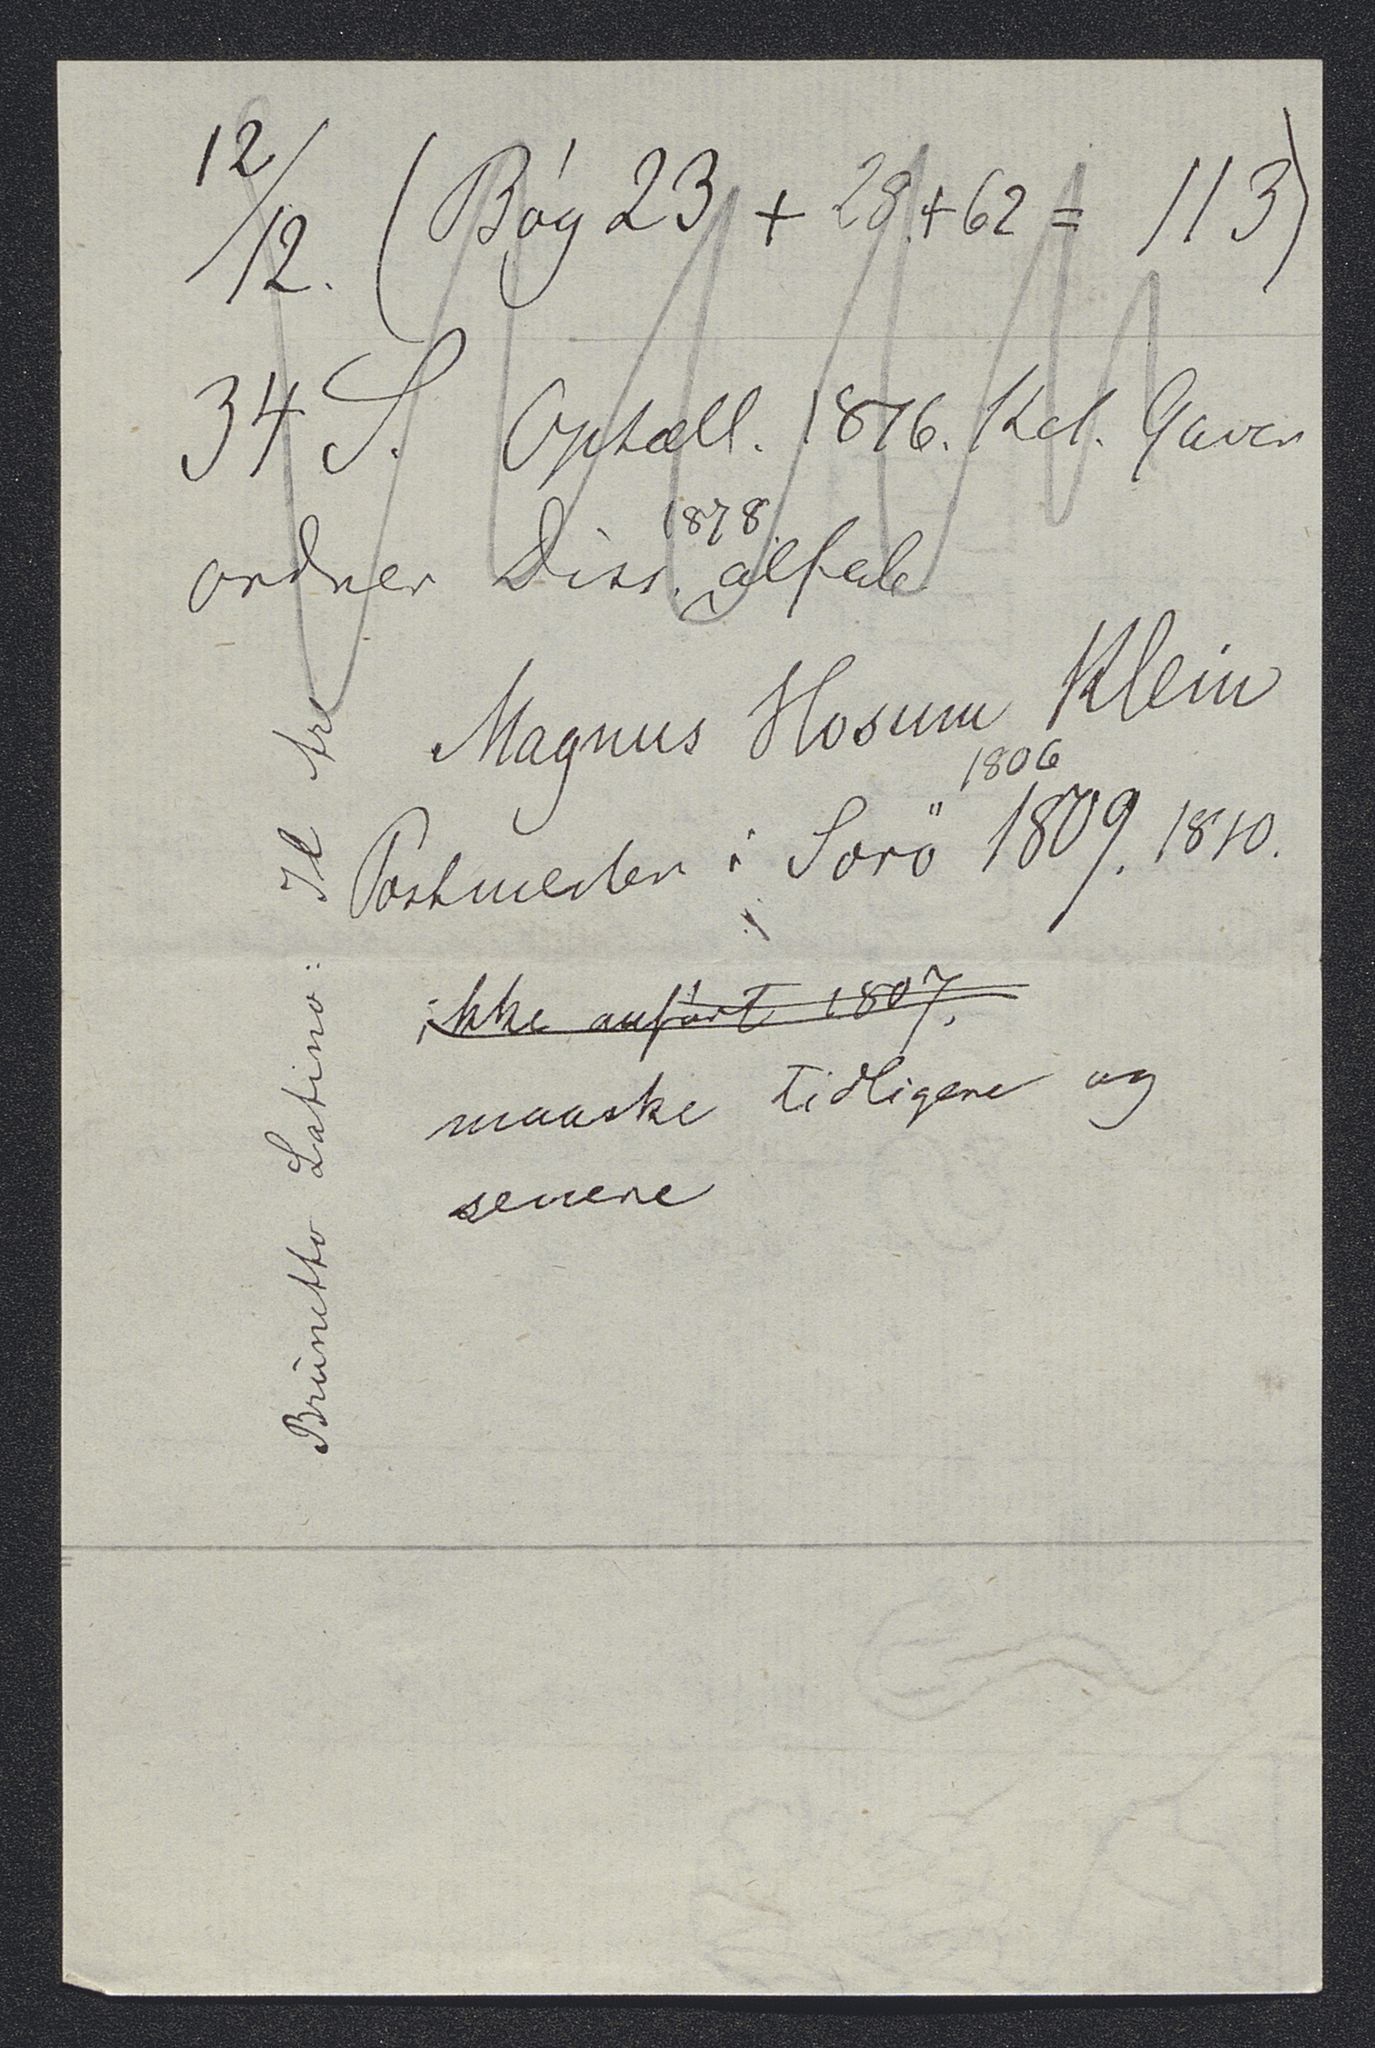 12/12. (Bøg 23 + 28 + 62 = 113)
34 S. Optæll. 1876. Kcl. Gaver
1878
ordner Diss. alfab
Magnus Hosum Klein
1806
Postmester i Sorö 1809. 1810.
ikke anført 1807.
maaske tidligere og
senere
Brunetto Latino: Il tre